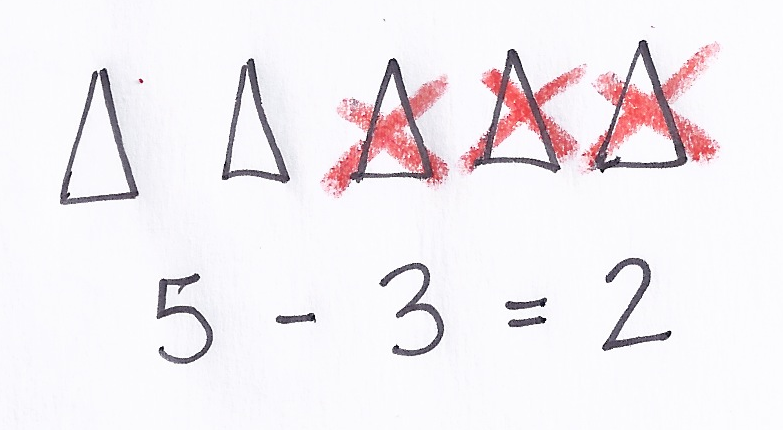 5 - 3 = 2